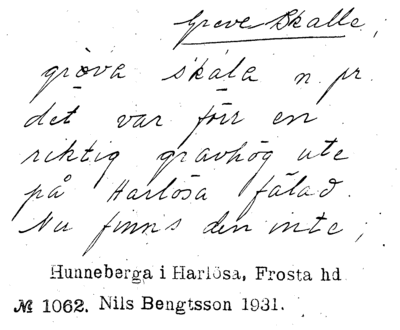 Greve Skalle;
gròva skála n. pr.
det var förr en
riktig gravhög ute
på Harlösa fälad.
Nu finns den inte;
Hunneberga i Harlösa, Frosta hd
№ 1062. Nils Bengtsson 1931.